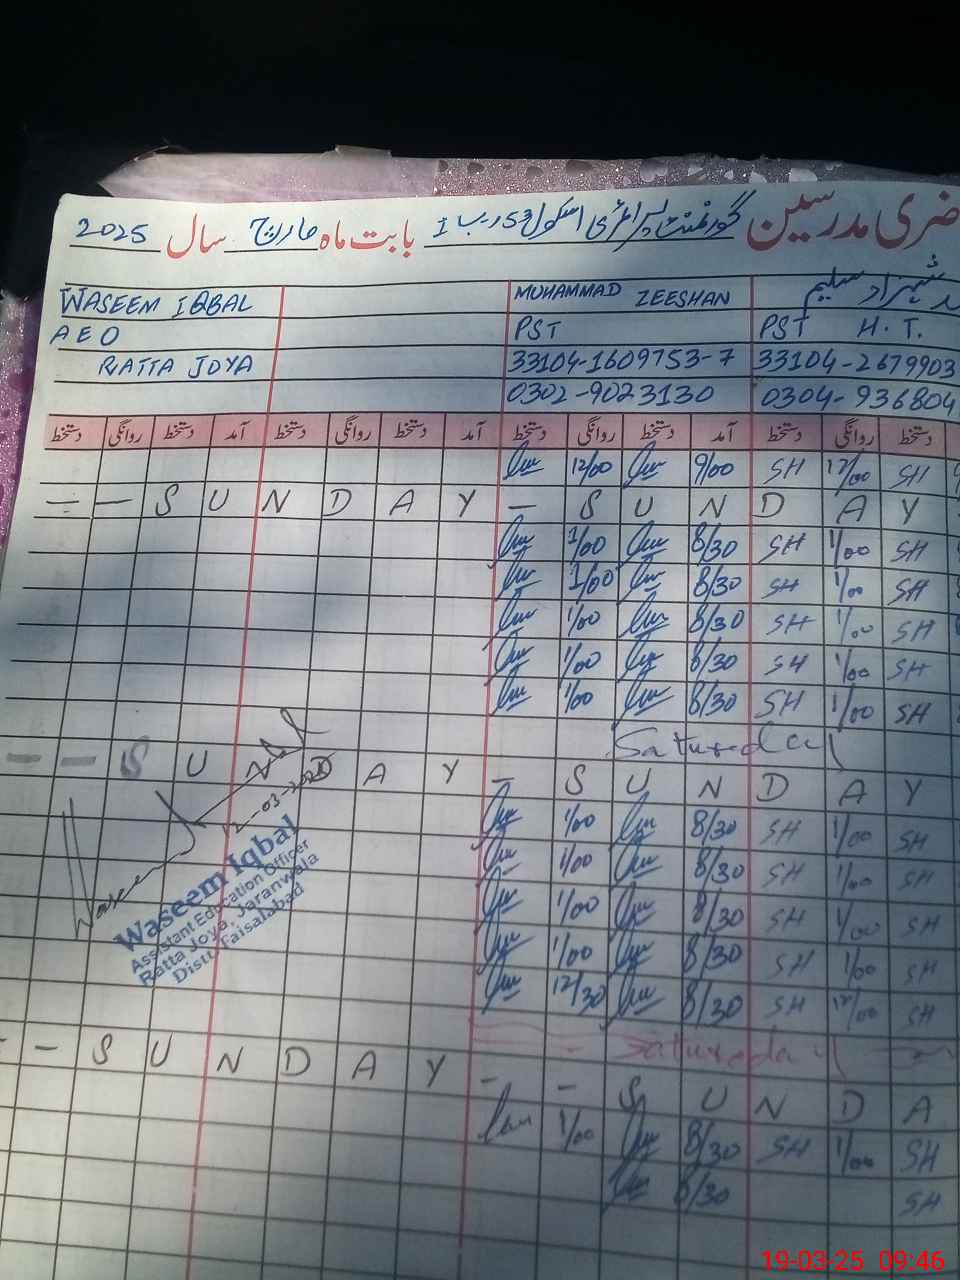 ضری مدرسین گورنمنٹ پرائمری اسکول رب I بابت ماہ مارچ سال 2025
WASEEM IQBAL MUHAMMAD ZEESHAN شہزاد سلیم
AEO PST PST H.T.
RATTA JOYA 33104-1609753-7 33104-2679903
0302-9023130 0304-936804
دستخط روانگی دستخط آمد دستخط روانگی دستخط آمد دستخط روانگی دستخط آمد دستخط روانگی دستخط
12/00 9/00 SH 12/00 SH
- - S U N D A Y - S U N D A Y
1/00 8/30 SH 1/00 SH
1/00 8/30 SH 1/00 SH
1/00 8/30 SH 1/00 SH
1/00 8/30 SH 1/00 SH
1/00 8/30 SH 1/00 SH
Saturday
- - S U N D A Y - S U N D A Y
1/00 8/30 SH 1/00 SH
1/00 8/30 SH 1/00 SH
1/00 8/30 SH 1/00 SH
1/00 8/30 SH 1/00 SH
12/30 8/30 SH 12/00 SH
Saturday
- - S U N D A Y - - S U N D A
1/00 8/30 SH 1/00 SH
8/30 SH
12-03-2025
Waseem Iqbal
Assistant Education Officer
Ratta Joya, Jaranwala
Distt: Faisalabad
19-03-25 09:46